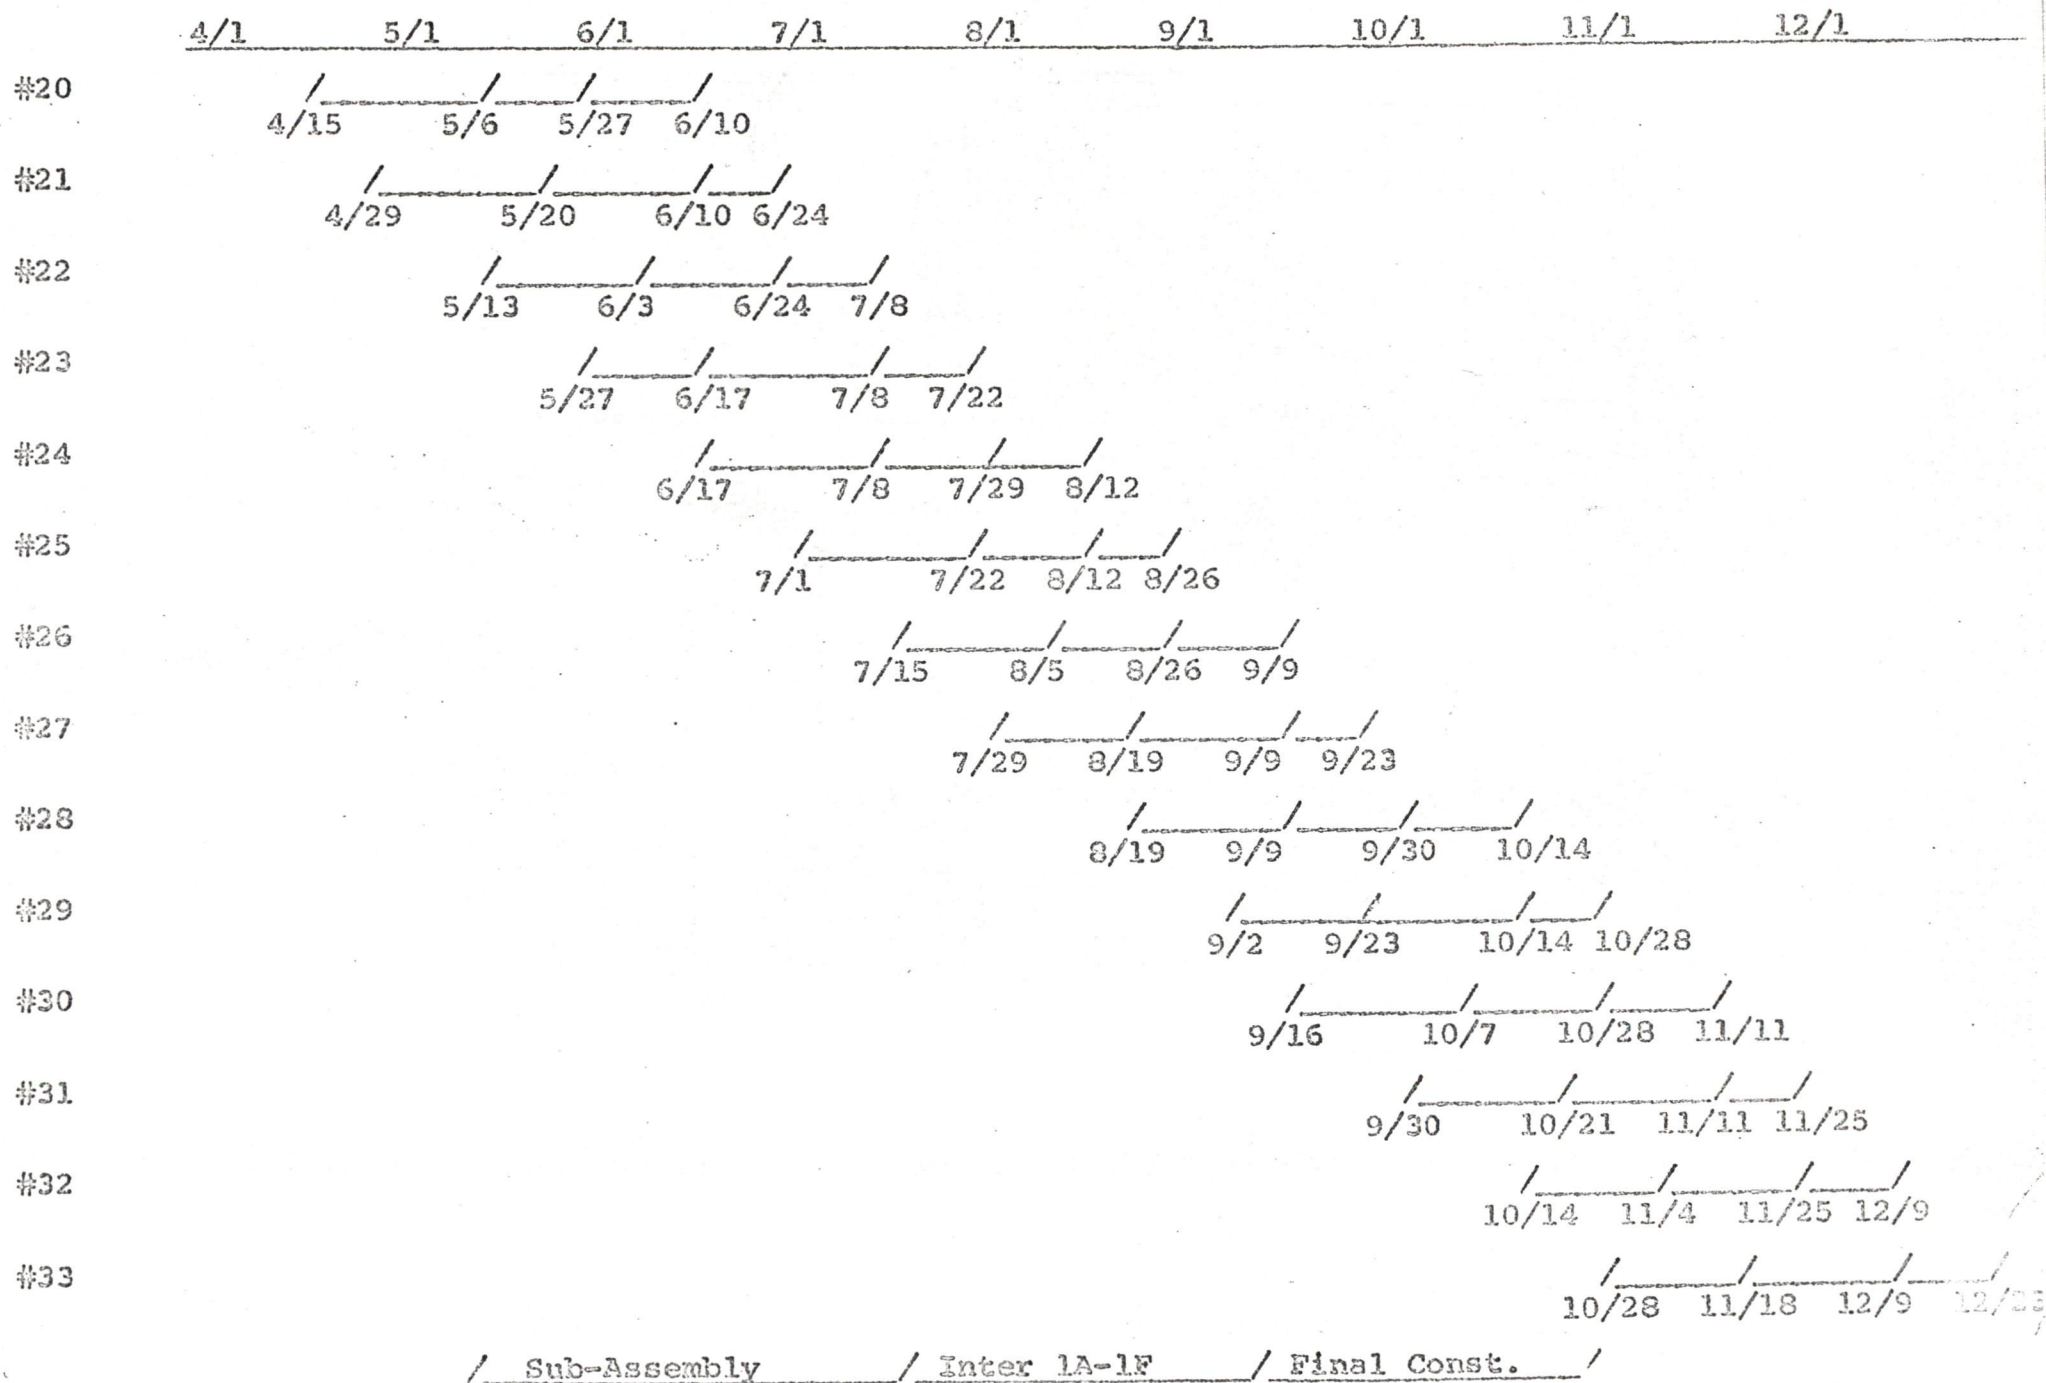 4/1 5/1 6/1 7/1 8/1 9/1 10/1 11/1 12/1
#20
4/15 5/6 5/27 6/10
#21
4/29 5/20 6/10 6/24
#22
5/13 6/3 6/24 7/8
#23
5/27 6/17 7/8 7/22
#24
6/17 7/8 7/29 8/12
#25
7/1 7/22 8/12 8/26
#26
7/15 8/5 8/26 9/9
#27
7/29 8/19 9/9 9/23
#28
8/19 9/9 9/30 10/14
#29
9/2 9/23 10/14 10/28
#30
9/16 10/7 10/28 11/11
#31
9/30 10/21 11/11 11/25
#32
10/14 11/4 11/25 12/9
#33
10/28 11/18 12/9 12/23
/ Sub-Assembly / Inter 1A-1F / Final Const. /